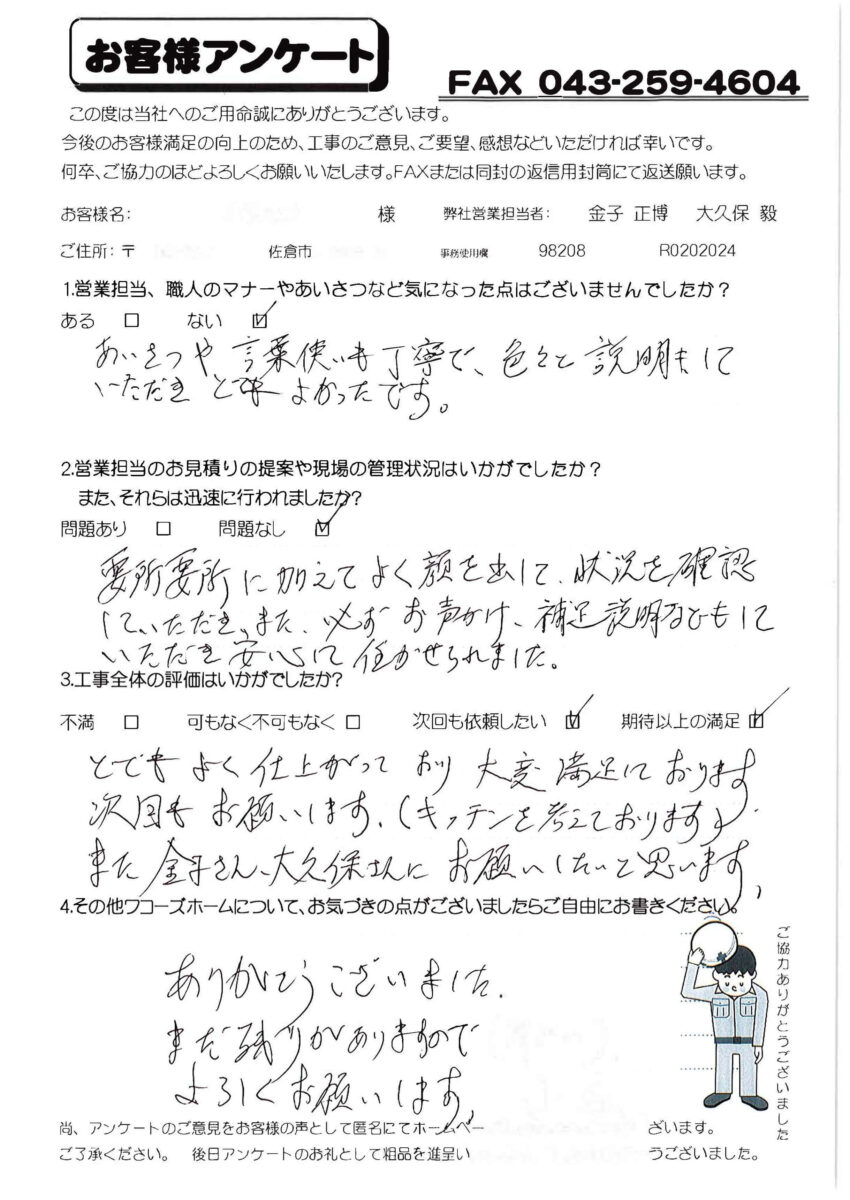 お客様アンケート
FAX 043-259-4604
この度は当社へのご用命誠にありがとうございます。
今後のお客様満足の向上のため、工事のご意見、ご要望、感想などいただければ幸いです。
何卒、ご協力のほどよろしくお願いいたします。FAXまたは同封の返信用封筒にて返送願います。
お客様名: 様 弊社営業担当者: 金子 正博 大久保 毅
ご住所:〒 佐倉市 事務使用欄 98208 R0202024
1.営業担当、職人のマナーやあいさつなど気になった点はございませんでしたか?
ある □ ない ☑
あいさつや言葉使いも丁寧で、色々と説明もして
いただきとてもよかったです。
2.営業担当のお見積りの提案や現場の管理状況はいかがでしたか?
また、それらは迅速に行われましたか?
問題あり □ 問題なし ☑
要所要所に加えてよく顔を出して、状況を確認
していただき、また、必ずお声かけ、補足説明などもして
いただき安心して任かせられました。
3.工事全体の評価はいかがでしたか?
不満 □ 可もなく不可もなく □ 次回も依頼したい ☑ 期待以上の満足 ☑
とてもよく仕上がっており大変満足しております
次回もお願いします。(キッチンを考えております)
また金子さん、大久保さんにお願いしたいと思います。
4.その他ワコーズホームについて、お気づきの点がございましたらご自由にお書きください。
ありがとうございました。
まだ残りがありますので
よろしくお願いします。
ご協力ありがとうございました
尚、アンケートのご意見をお客様の声として匿名にてホームペー ざいます。
ご了承ください。 後日アンケートのお礼として粗品を進呈い うございました。